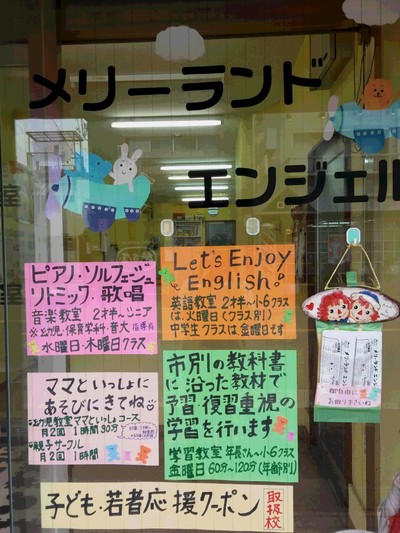 メリーランド
エンジェル
ピアノ・ソルフェージュ
リトミック・歌唱
音楽教室 2才半~シニア
※幼児・保育学科・音大 指導有
水曜日・木曜日クラス
Let's Enjoy
English!
英語教室 2才半~小6クラス
は、火曜日(クラス別)
中学生クラスは金曜日です
ママといっしょに
あそびにきてね
幼児教室ママといっしょコース
月2回 1時間30分
親子サークル
月2回 1時間
市別の教科書
に沿った教材で
予習・復習重視の
学習を行います
学習教室 年長さん~小6クラス
金曜日 60分~120分(年齢別)
子ども・若者応援クーポン
取扱校
ご自由に
お取り下さいね